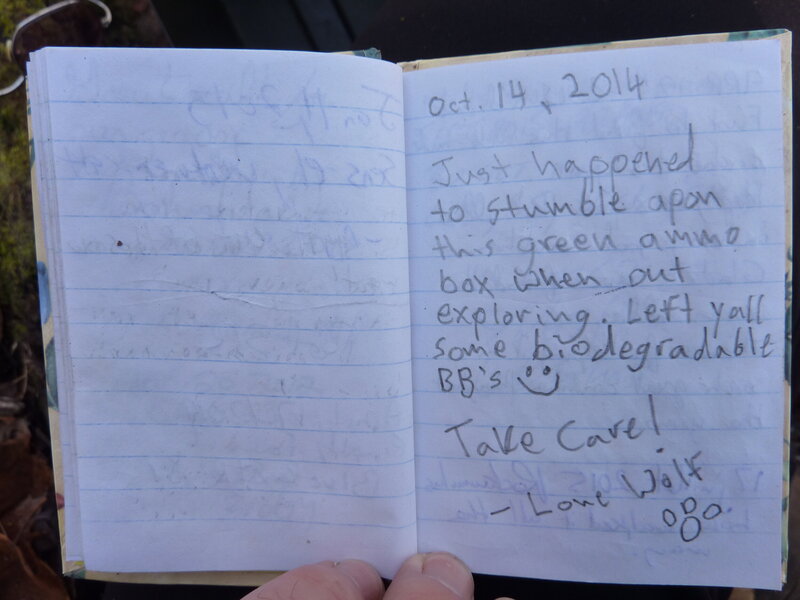 Oct. 14, 2014
Just happened
to stumble apon
this green ammo
box when out
exploring. Left yall
some biodegradable
BB's
Take Care!
- Lone Wolf